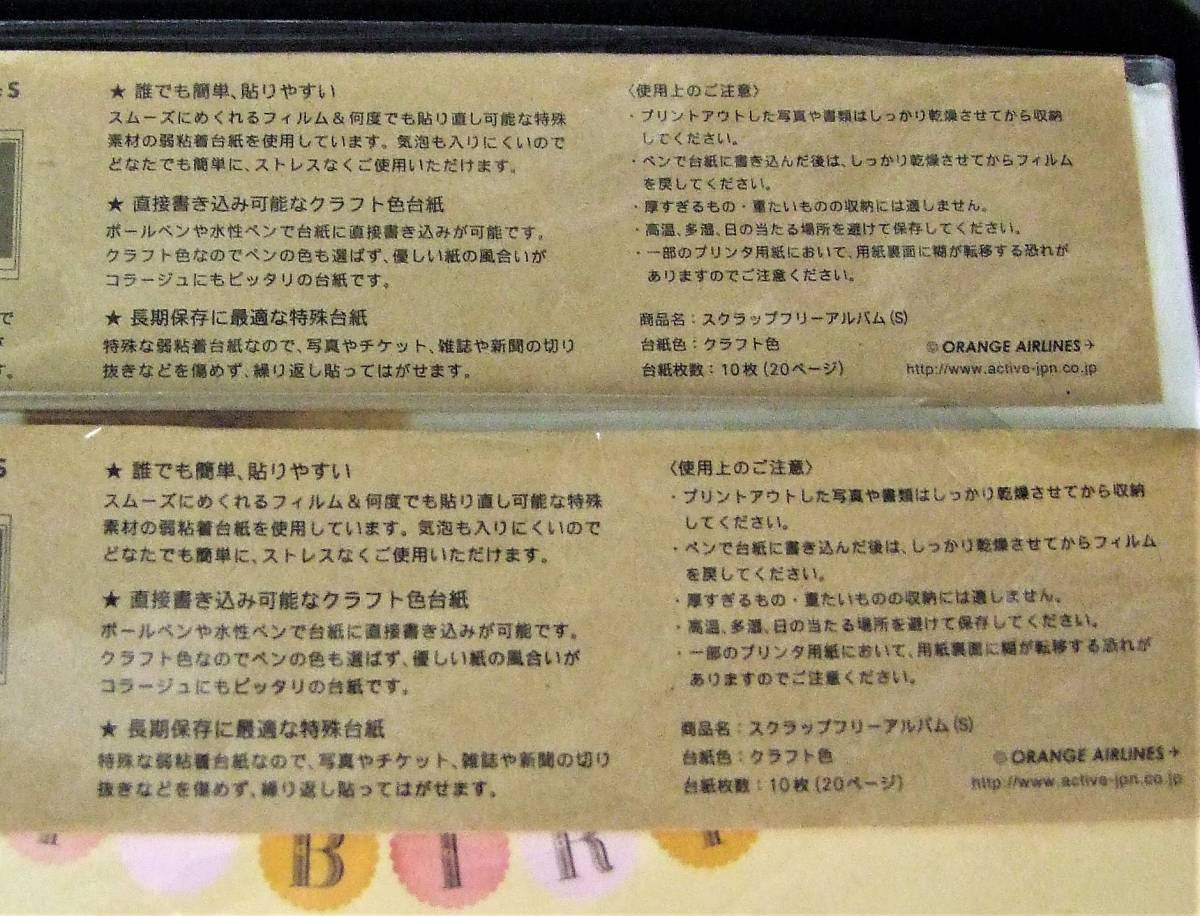 S
★ 誰でも簡単、貼りやすい
スムーズにめくれるフィルム＆何度でも貼り直し可能な特殊
素材の弱粘着台紙を使用しています。気泡も入りにくいので
どなたでも簡単に、ストレスなくご使用いただけます。
★ 直接書き込み可能なクラフト色台紙
ボールペンや水性ペンで台紙に直接書き込みが可能です。
クラフト色なのでペンの色も選ばず、優しい紙の風合いが
コラージュにもピッタリの台紙です。
で
★ 長期保存に最適な特殊台紙
特殊な弱粘着台紙なので、写真やチケット、雑誌や新聞の切り
抜きなどを傷めず、繰り返し貼ってはがせます。
〈使用上のご注意〉
・プリントアウトした写真や書類はしっかり乾燥させてから収納
してください。
・ペンで台紙に書き込んだ後は、しっかり乾燥させてからフィルム
を戻してください。
・厚すぎるもの・重たいものの収納には適しません。
・高温、多湿、日の当たる場所を避けて保存してください。
・一部のプリンタ用紙において、用紙裏面に糊が転移する恐れが
ありますのでご注意ください。
商品名：スクラップフリーアルバム（S）
台紙色：クラフト色
台紙枚数：10枚（20ページ）
© ORANGE AIRLINES✈
http://www.active-jpn.co.jp
S
★ 誰でも簡単、貼りやすい
スムーズにめくれるフィルム＆何度でも貼り直し可能な特殊
素材の弱粘着台紙を使用しています。気泡も入りにくいので
どなたでも簡単に、ストレスなくご使用いただけます。
★ 直接書き込み可能なクラフト色台紙
ボールペンや水性ペンで台紙に直接書き込みが可能です。
クラフト色なのでペンの色も選ばず、優しい紙の風合いが
コラージュにもピッタリの台紙です。
★ 長期保存に最適な特殊台紙
特殊な弱粘着台紙なので、写真やチケット、雑誌や新聞の切り
抜きなどを傷めず、繰り返し貼ってはがせます。
〈使用上のご注意〉
・プリントアウトした写真や書類はしっかり乾燥させてから収納
してください。
・ペンで台紙に書き込んだ後は、しっかり乾燥させてからフィルム
を戻してください。
・厚すぎるもの・重たいものの収納には適しません。
・高温、多湿、日の当たる場所を避けて保存してください。
・一部のプリンタ用紙において、用紙裏面に糊が転移する恐れが
ありますのでご注意ください。
商品名：スクラップフリーアルバム（S）
台紙色：クラフト色
台紙枚数：10枚（20ページ）
© ORANGE AIRLINES✈
http://www.active-jpn.co.jp
BIR